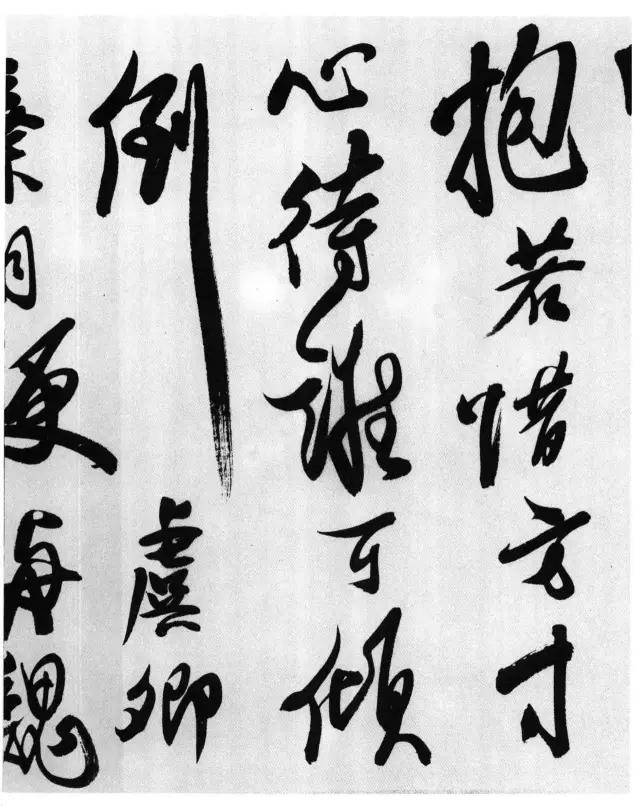 抱若惜方寸
心待誰可傾
倒 虞卿
魏